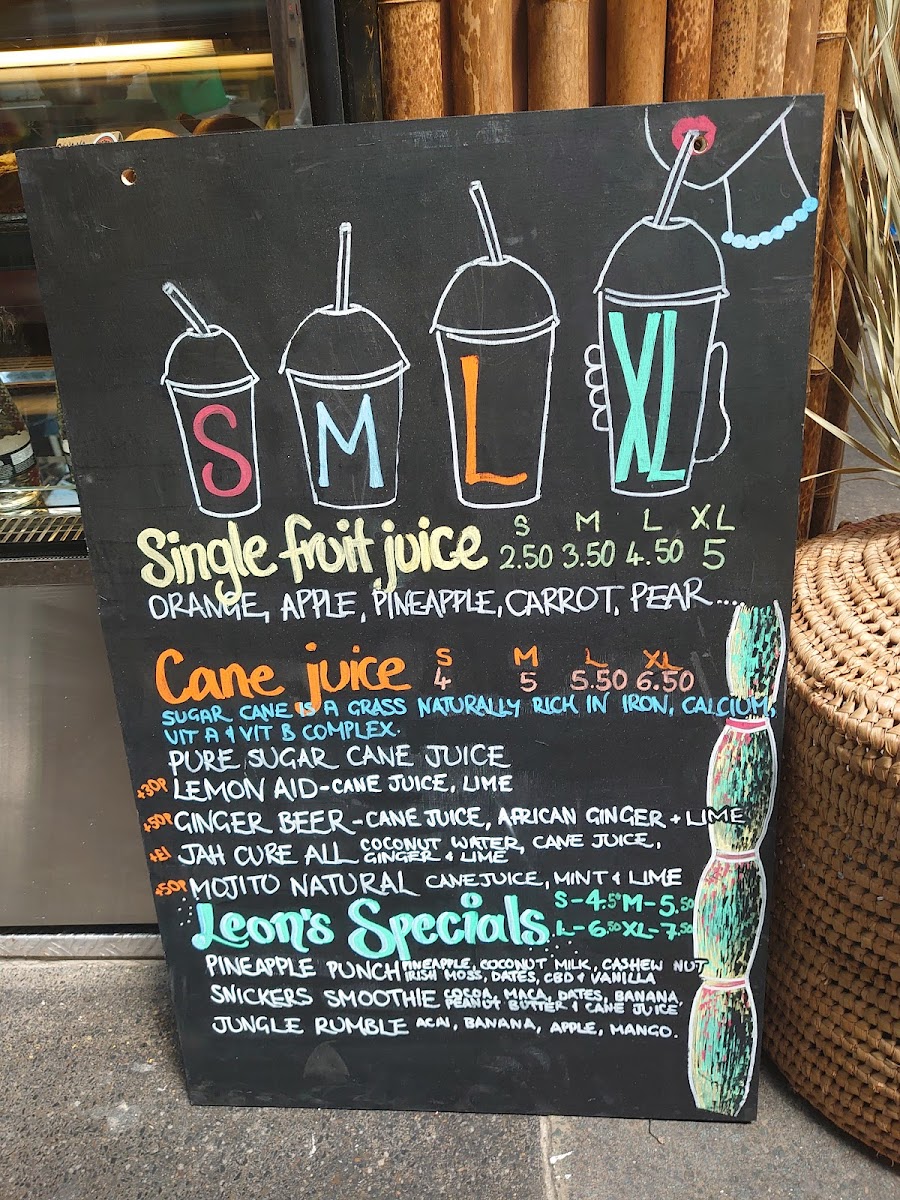 S M L XL
S M L XL
Single fruit juice 2.50 3.50 4.50 5
ORANGE, APPLE, PINEAPPLE, CARROT, PEAR....
S M L XL
Cane juice 4 5 5.50 6.50
SUGAR CANE IS A GRASS NATURALLY RICH IN IRON, CALCIUM,
VIT A & VIT B COMPLEX.
PURE SUGAR CANE JUICE
+30P LEMON AID - CANE JUICE, LIME
+50P GINGER BEER - CANE JUICE, AFRICAN GINGER + LIME
+£1 JAH CURE ALL COCONUT WATER, CANE JUICE,
GINGER & LIME
+50P MOJITO NATURAL CANE JUICE, MINT & LIME
Leon's Specials S - 4.50 M - 5.50
L - 6.50 XL - 7.50
PINEAPPLE PUNCH PINEAPPLE, COCONUT MILK, CASHEW NUT
IRISH MOSS, DATES, CBD & VANILLA
SNICKERS SMOOTHIE COCOA, MACA, DATES, BANANA,
PEANUT BUTTER & CANE JUICE
JUNGLE RUMBLE ACAI, BANANA, APPLE, MANGO.